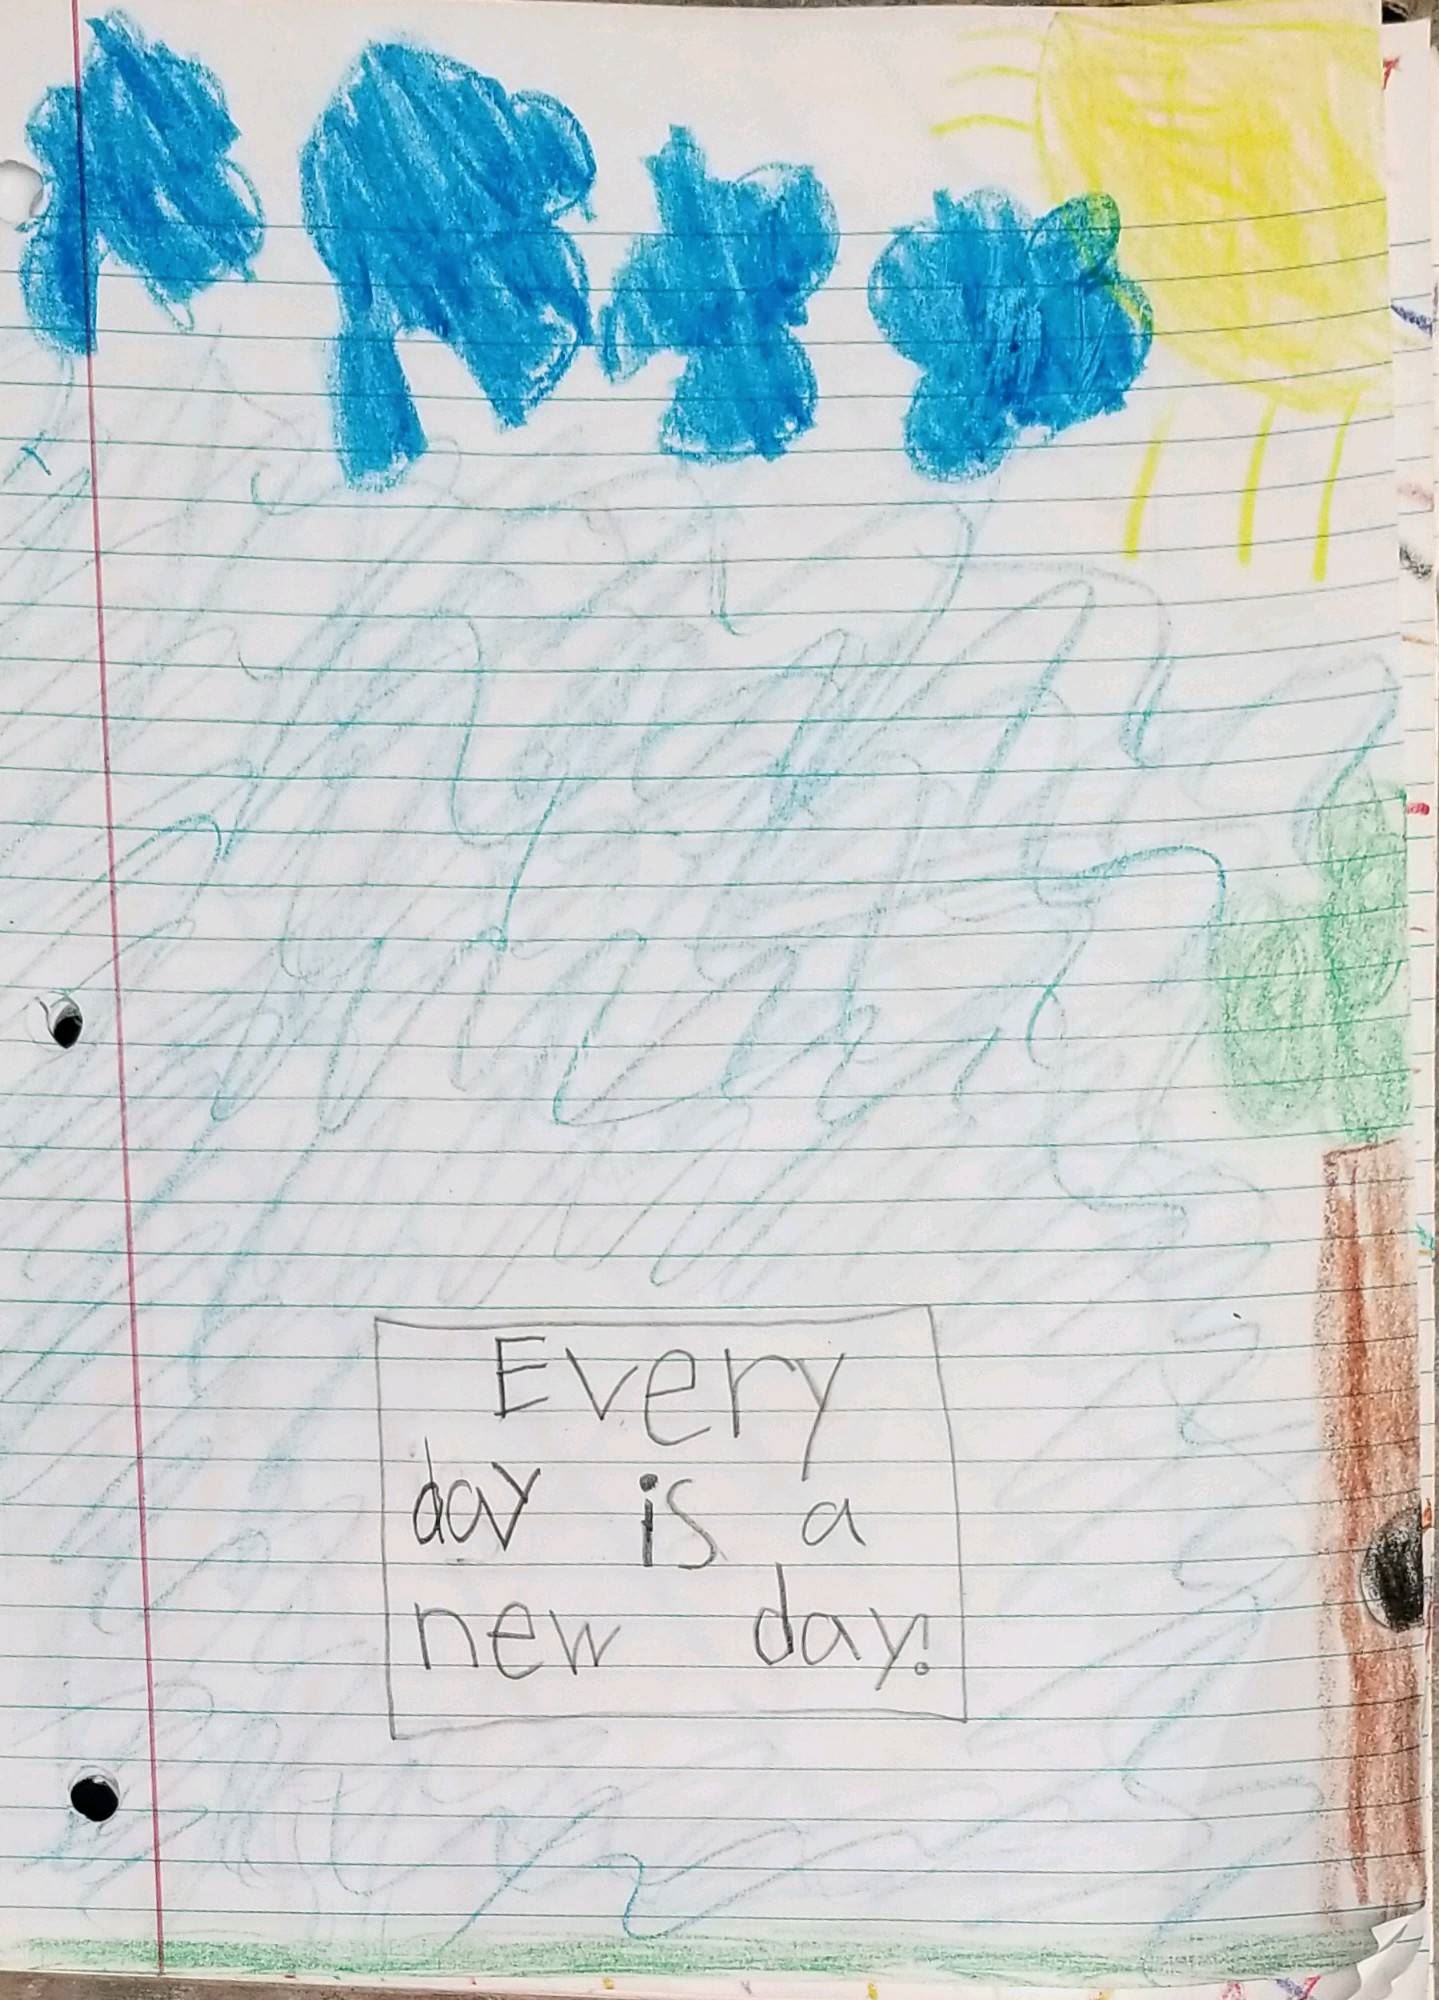 Every
day is a
new day!